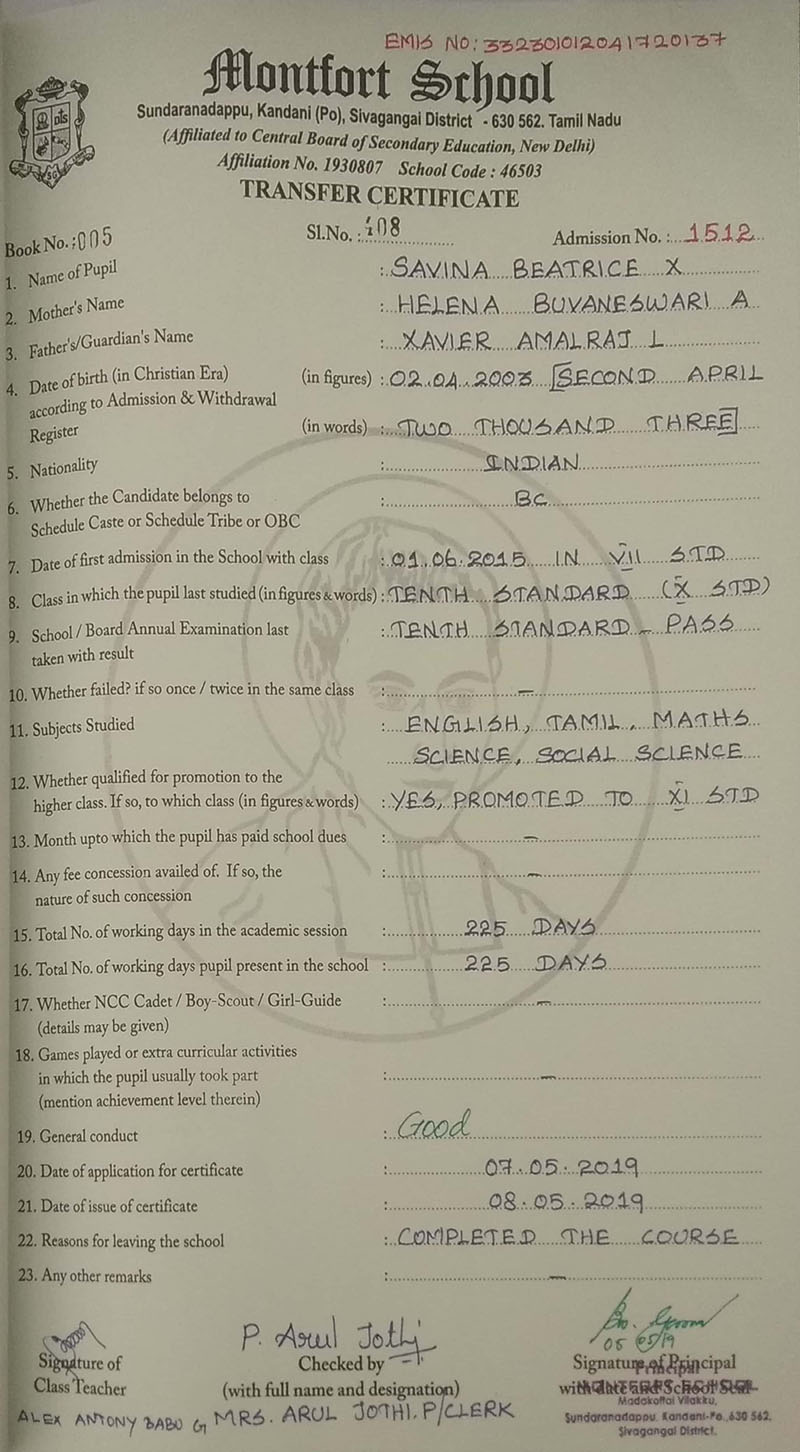 EMIS NO: 332301012041720137
Montfort School
Sundaranadappu, Kandani (Po), Sivagangai District - 630 562. Tamil Nadu
(Affiliated to Central Board of Secondary Education, New Delhi)
Affiliation No. 1930807 School Code : 46503
TRANSFER CERTIFICATE
Book No. : 005 Sl.No. : 108 Admission No. : 1512
1. Name of Pupil : SAVINA BEATRICE X
2. Mother's Name : HELENA BUVANESWARI A
3. Father's/Guardian's Name : XAVIER AMALRAJ L
4. Date of birth (in Christian Era) (in figures) : 02.04.2003 [SECOND APRIL
according to Admission & Withdrawal
Register (in words) : TWO THOUSAND THREE]
5. Nationality : INDIAN
6. Whether the Candidate belongs to : BC
Schedule Caste or Schedule Tribe or OBC
7. Date of first admission in the School with class : 01.06.2015 IN VII STD
8. Class in which the pupil last studied (in figures & words) : TENTH STANDARD (X STD)
9. School / Board Annual Examination last : TENTH STANDARD - PASS
taken with result
10. Whether failed? if so once / twice in the same class : -
11. Subjects Studied : ENGLISH, TAMIL, MATHS
SCIENCE, SOCIAL SCIENCE
12. Whether qualified for promotion to the
higher class. If so, to which class (in figures & words) : YES, PROMOTED TO XI STD
13. Month upto which the pupil has paid school dues : -
14. Any fee concession availed of. If so, the : -
nature of such concession
15. Total No. of working days in the academic session : 225 DAYS
16. Total No. of working days pupil present in the school : 225 DAYS
17. Whether NCC Cadet / Boy-Scout / Girl-Guide : -
(details may be given)
18. Games played or extra curricular activities
in which the pupil usually took part : -
(mention achievement level therein)
19. General conduct : Good
20. Date of application for certificate : 07.05.2019
21. Date of issue of certificate : 08.05.2019
22. Reasons for leaving the school : COMPLETED THE COURSE
23. Any other remarks : -
P. Arul Jothi
Signature of Checked by Signature of Principal
Class Teacher (with full name and designation) with date and School Seal
ALEX ANTONY BABU G MRS. ARUL JOTHI. P/CLERK
Madakottai Vilakku,
Sundaranadappu, Kandani-Po, 630 562.
Sivagangai District.